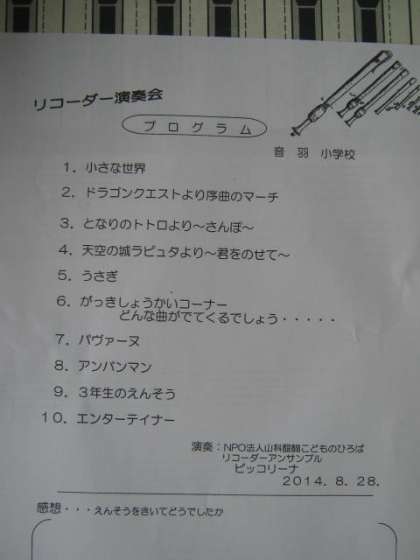 リコーダー演奏会
プログラム
音羽 小学校
1．小さな世界
2．ドラゴンクエストより序曲のマーチ
3．となりのトトロより～さんぽ～
4．天空の城ラピュタより～君をのせて～
5．うさぎ
6．がっきしょうかいコーナー
どんな曲がでてくるでしょう・・・・・
7．パヴァーヌ
8．アンパンマン
9．3年生のえんそう
10．エンターテイナー
演奏：NPO法人山科醍醐こどものひろば
リコーダーアンサンブル
ピッコリーナ
2014．8．28．
感想・・・えんそうをきいてどうでしたか